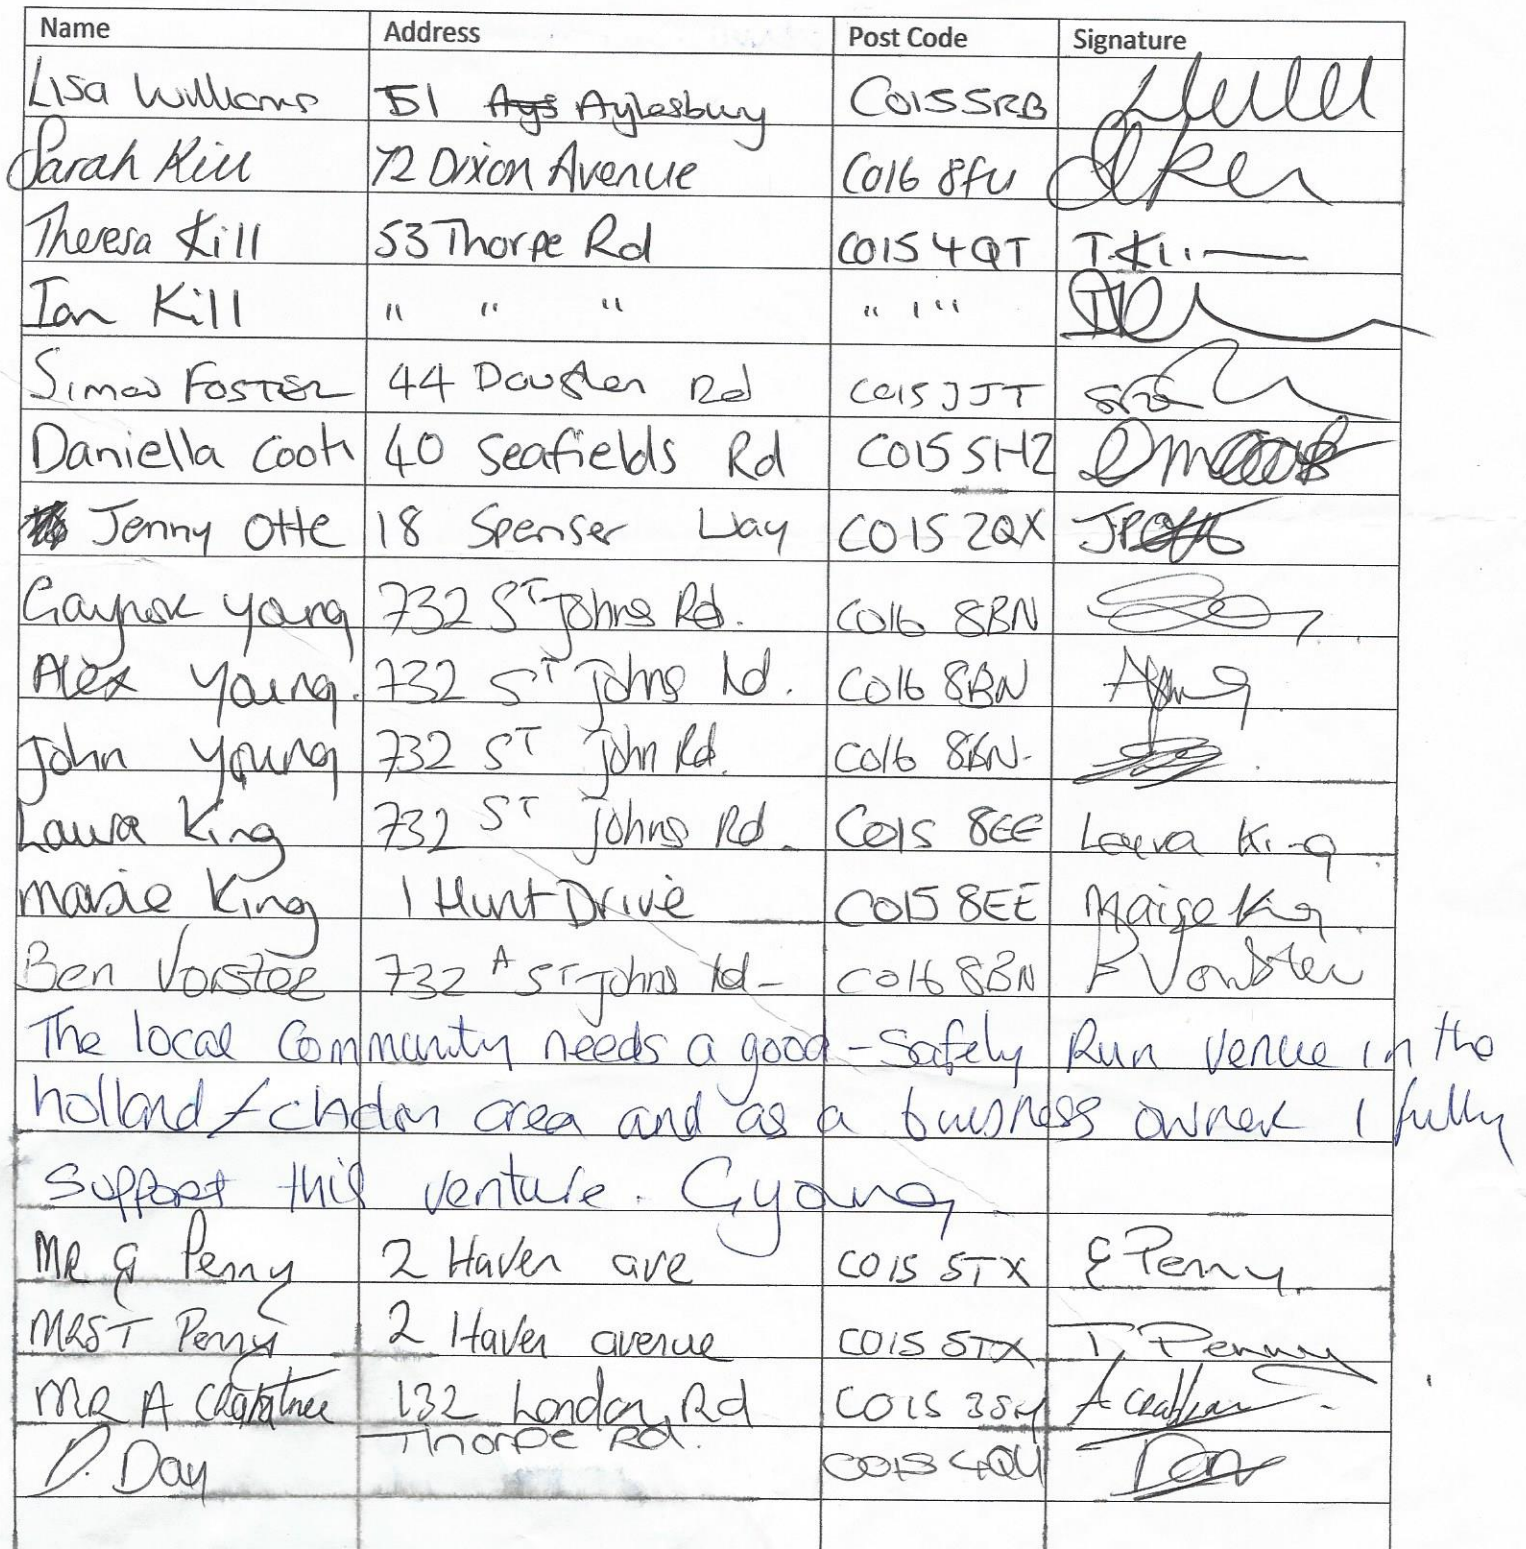 Name Address Post Code Signature
Lisa Williams 51 Aylesbury CO15 5RB
Sarah Kill 72 Dixon Avenue CO16 8FU
Theresa Kill 53 Thorpe Rd CO15 4QT T. Kill
Ian Kill " " " " " "
Simon FOSTER 44 Rd
Daniella Cook 40 Seafields Rd CO15 5HZ
Jenny Otte 18 Spenser Way CO15 2QX
Gaynor Young 732 ST Johns Rd. CO16 8BN
Alex Young. 732 ST Johns Rd. CO16 8BN AYoung
John Young 732 ST John Rd. CO16 8BN.
Laura King 732 ST Johns Rd. CO15 8EE Laura King
King 1 Hunt Drive CO15 8EE King
Ben 732 A ST Johns Rd- CO16 8BN
The local Community needs a good - safely Run venue in the
holland / clacton area and as a business owner I fully
support this venture. GYoung
MR G Penny 2 Haven ave CO15 5TX G Penny.
MRS T Penny 2 Haven avenue CO15 5TX T. Penny
MR A Crabtree 132 London Rd CO15 A Crabtree
D. Day Thorpe Rd. CO15 4QU Day